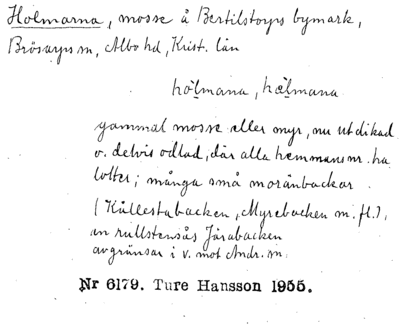 Holmarna, mosse å Bertilstorps bymark,
Brösarps sn, Albo hd, Krist. län
hȯl̥mana, hæl̥mana
gammal mosse eller myr, nu utdikad
o. delvis odlad, där alla hemmansnr. ha
lotter; många små moränbackar
(Kullestabacken, Myrebacken m. fl.),
en rullstensås Järabacken
avgränsar i v. mot Andr. sn.
Nr 6179. Ture Hansson 1955.